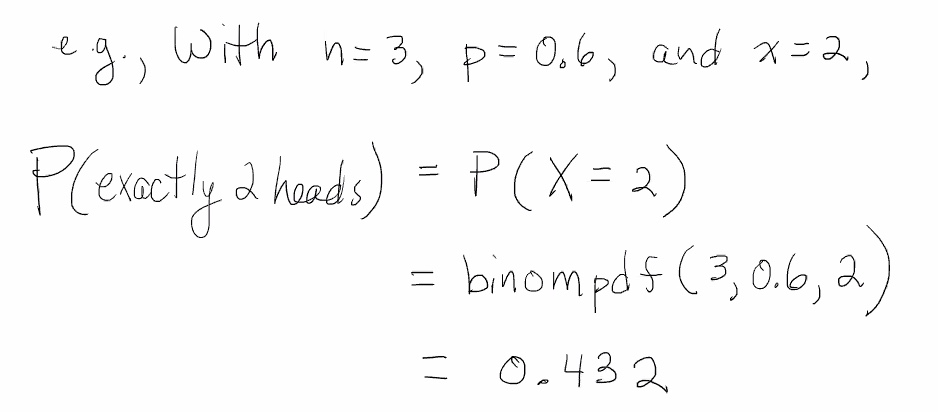 e.g., With n=3, p=0.6, and x=2,
P(exactly 2 heads) = P(X=2)
= binompdf(3,0.6,2)
= 0.432